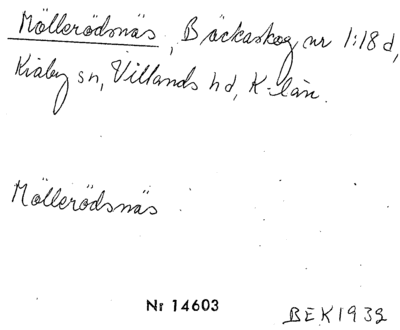 Möllerödsnäs, Bäckaskog nr 1:18 d,
Kiaby sn, Villands hd, K-län.
Möllerödsnäs
Nr 14603
BEK 1932